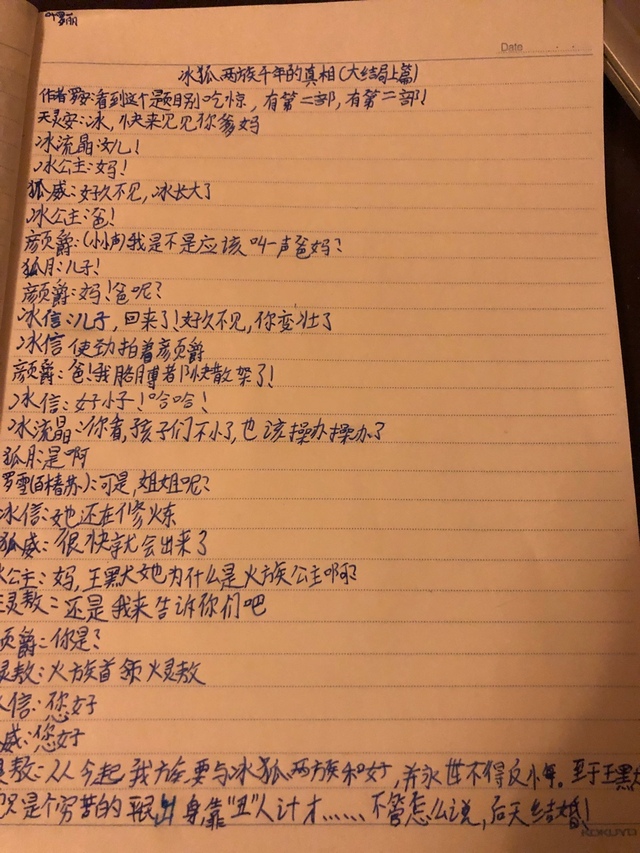 叶罗丽
Date
冰狐两族千年的真相(大结局上篇)
作者罗安:看到这个题目别吃惊,有第二部,有第二部!
天灵安:冰,快来见见你爹妈
冰流晶:女儿!
冰公主:妈!
狐威:好久不见,冰长大了
冰公主:爸!
颜爵:(小声)我是不是应该叫一声爸妈?
狐月:儿子!
颜爵:妈!爸呢?
冰信:儿子,回来了!好久不见,你变壮了
冰信使劲拍着颜爵
颜爵:爸!我胳膊都快散架了!
冰信:好小子!哈哈!
冰流晶:你看,孩子们不小了,也该操办操办了
狐月:是啊
罗雪(百椿苏):可是,姐姐呢?
冰信:她还在修炼
狐威:很快就会出来了
公主:妈,王黑犬她为什么是火族公主啊?
灵敖:还是我来告诉你们吧
颜爵:你是?
灵敖:火族首领火灵敖
信:您好
威:您好
敖:从今起我族要与冰狐两族和好,并永世不得反悔。至于王黑
只是个穷苦的平民出身,靠“丑”人计才……不管怎么说,后天结婚!
KOKUYO